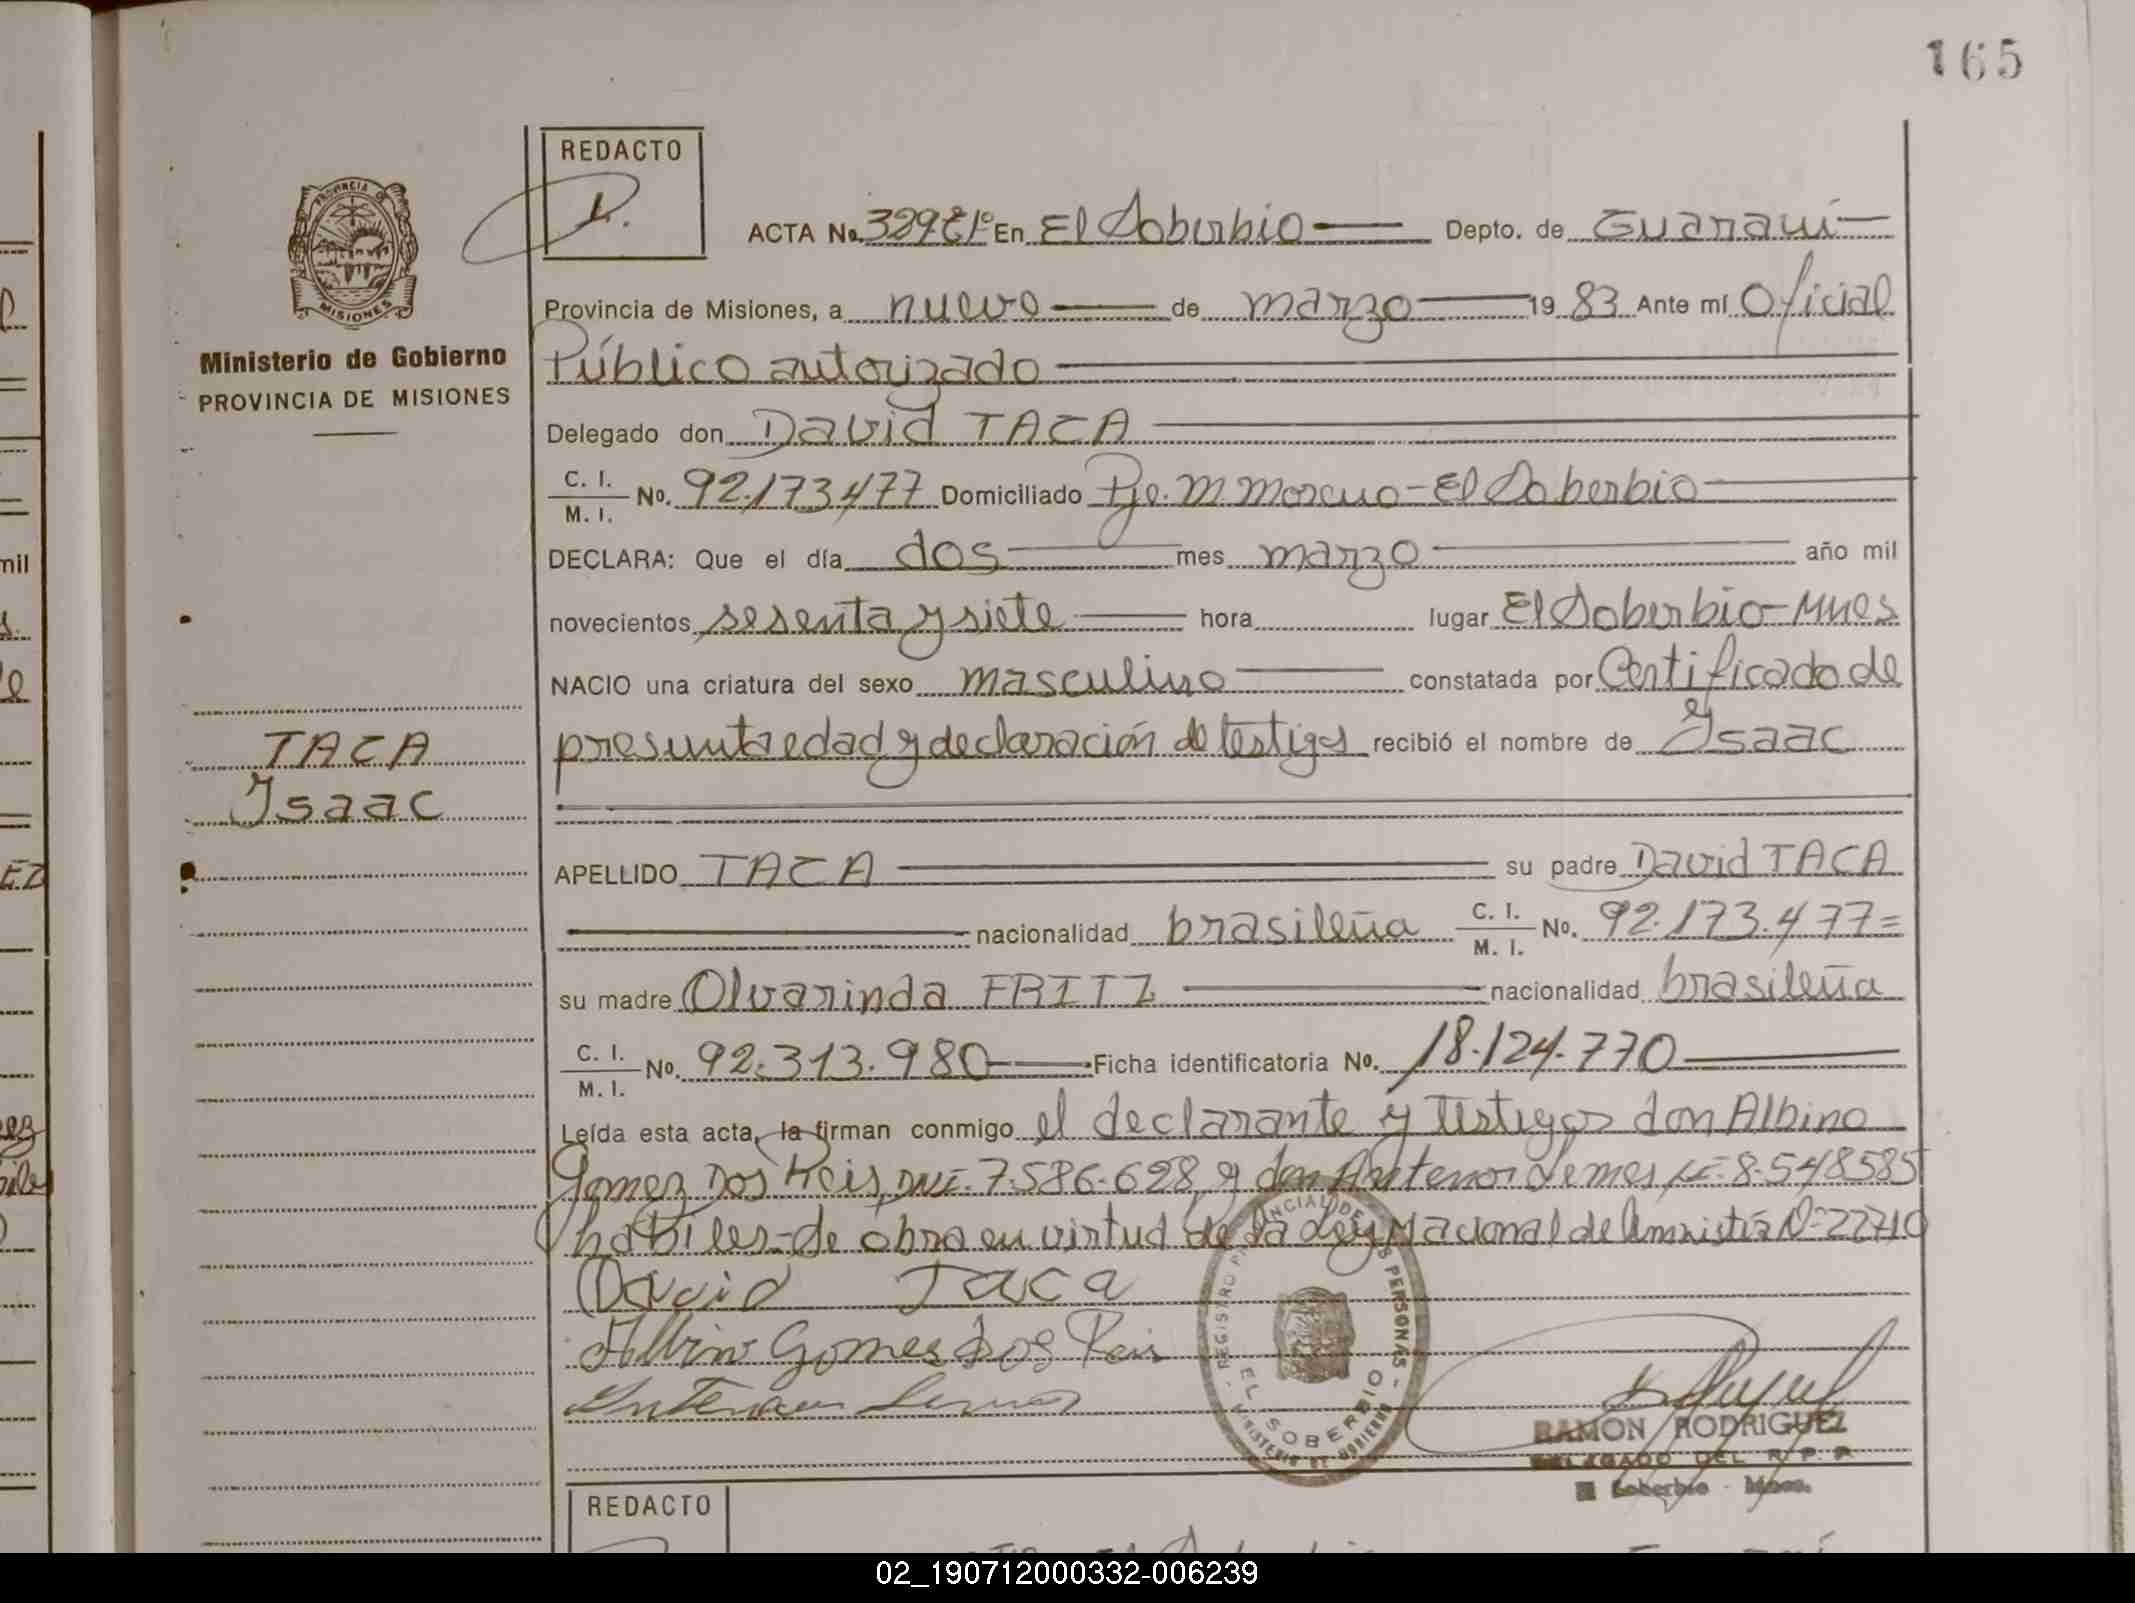 165
REDACTO
ACTA No. 329 E 1º En El Soberbio Depto. de Guaraní
Provincia de Misiones, a nueve de marzo 19 83 Ante mí Oficial
Público autorizado
Delegado don David TACA
C. I.
M. I. No. 92.173.477 Domiciliado Pje. M. Moreno - El Soberbio
DECLARA: Que el día dos mes marzo año mil
novecientos sesenta y siete hora lugar El Soberbio - Mnes
NACIO una criatura del sexo masculino constatada por Certificado de
presunta edad y declaración de testigos recibió el nombre de Isaac
APELLIDO TACA su padre David TACA
nacionalidad brasileña C. I.
M. I. No. 92.173.477=
su madre Olvarinda FRITZ nacionalidad brasileña
C. I.
M. I. No. 92.313.980 Ficha identificatoria No. 18.124.770
Leída esta acta, la firman conmigo el declarante y testigos don Albino
Gomez Dos Reis, DNI. 7.586.628, y don Antenor Lemes LE. 8.548585
habiles - Se obra en virtud de la Ley Nacional de Amnistía Nº 22710
David Taca
Albino Gomes Dos Reis
Antenor Lemes
REGISTRO PROVINCIAL DE LAS PERSONAS
EL SOBERBIO
MINISTERIO DE GOBIERNO
RAMON RODRIGUEZ
DELEGADO DEL R. P. P.
El Soberbio - Mnes.
PROVINCIA DE
MISIONES
Ministerio de Gobierno
PROVINCIA DE MISIONES
TACA
Isaac
REDACTO
02_190712000332-006239